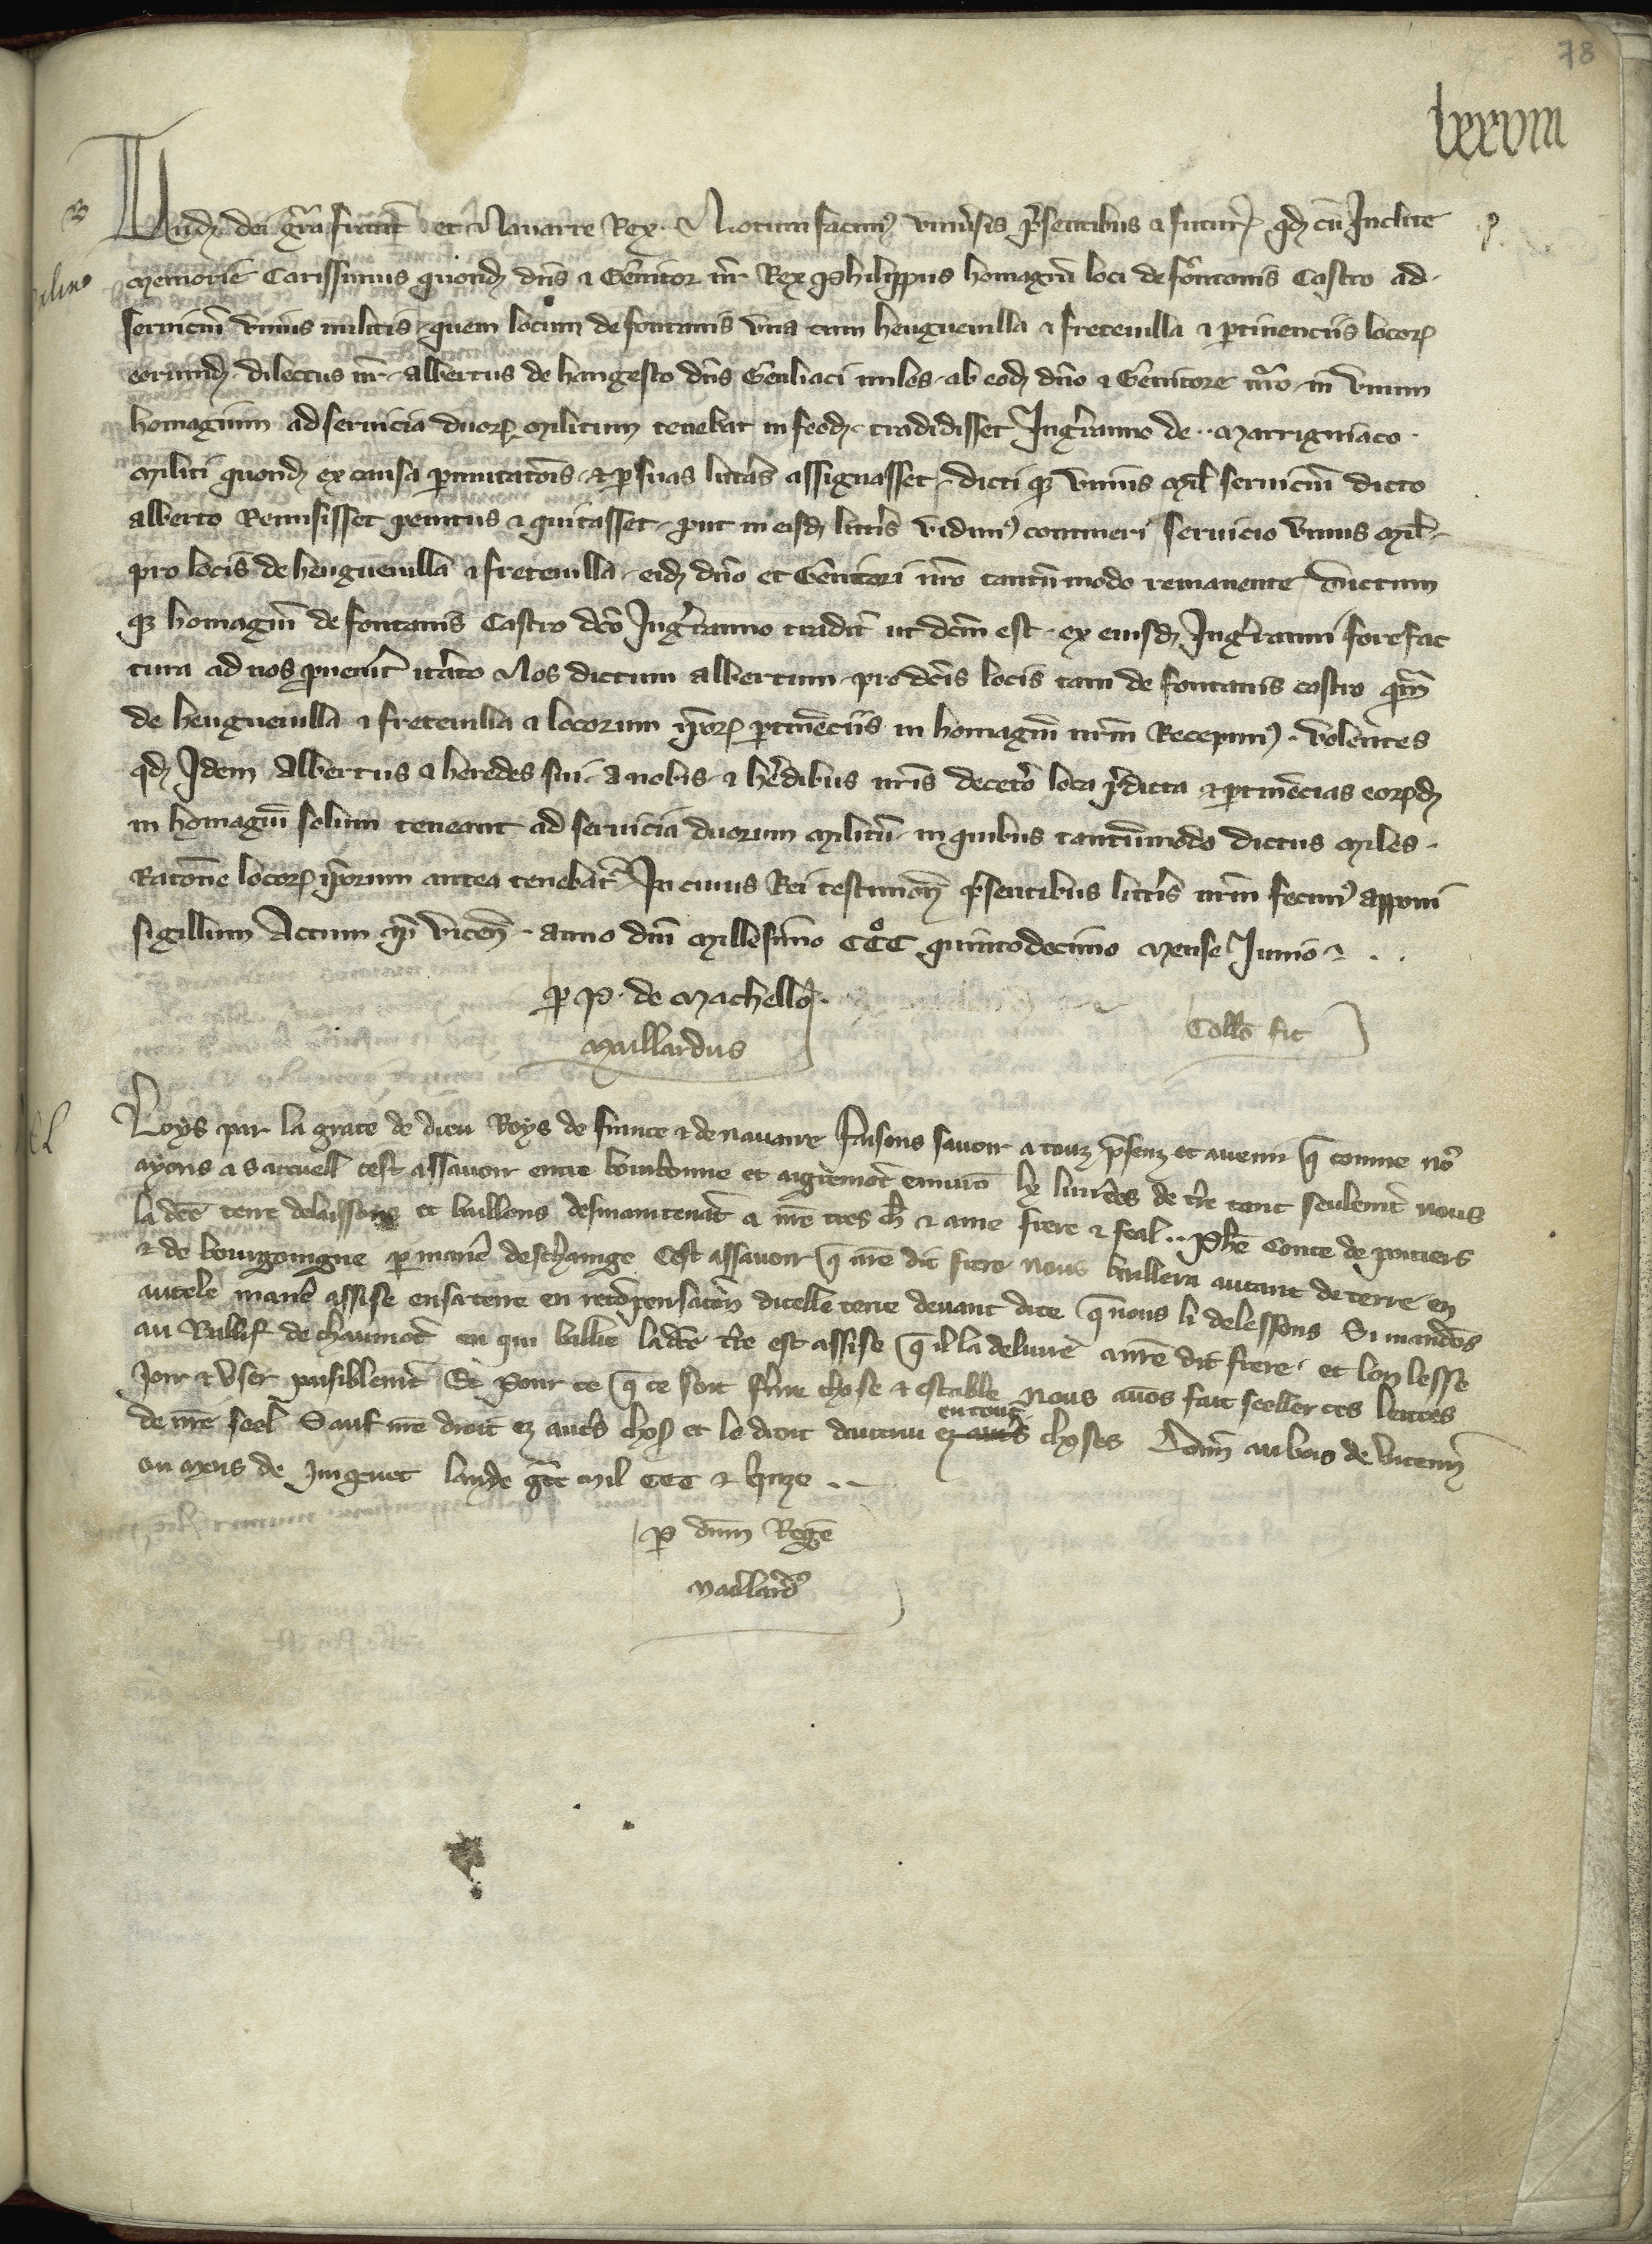 78
lxxviii
Lud. dei gra franc et Navarre Rex. Notum facim9 univsis psentibus & futur. qd cu Inclite
memorie Carissimus quond dns & Genitor nr Rex Philippus homagiu loci de Fontanis Castro ad
serviciu unius militis, quem locum de fontanis una cum heuguevilla & Fretevilla & ptinenciis locor
eorumd. dilectus nr Albertus de hangesto dns Genliaci miles. ab eod dno & Genitore nro in unum
homagium ad servicia duor militum tenebat in feod. tradidisset Ingranno de .. Marrigniaco
militi quond ex causa pmutatois & p suas littas assignasset. dicti q unius mil serviciu dicto
alberto Remisisset penitus & quitasset. put in eisd littis vidim9 contineri servicio unius mil
pro locis de heuguevilla & fretevilla. eid dno et Genitori nro tantumodo remanente dictum
q homagiu de fontanis Castro dco Ingranno tradit ut dcm est. ex eiusd Ingranni forefac
tura ad nos pvenit iterato Nos dictum albertum pro dcis locis tam de fontanis castro qm
de heuguevilla & fretevilla & locorum ipor ptineciis in homagiu nrm Recepim9. volentes
qd Idem Albertus & heredes sui a nobis & hedibus nris decetero loca pdicta & ptinecias eord
in homagiu solum teneant ad servicia duorum militu in quibus tantumodo dictus miles
Ratone locor iporum antea tenebat. In cuius Rei testimon psentibus littis nrm fecim9 apponi
sigillum Actum ap Vicen. anno dni millesimo CCC quintodecimo mense Junio
p P. de Machello.
Maillardus
Collo fit
Loys par la grace de dieu Roys de france & de navarre faisons savoir a touz psenz et avenir q comme no9
ayons a sarcuell cest assavoir entre bourbonne et aigremot environ lx livrees de tre tant seulemt nous
la dce terre delaissons et baillons desmaintenat a nre tres ch & ame frere & feal .. Phe Conte de poitiers
& de bourgoingne p maniere deschange Cest assavoir q nre dit frere nous baillera autant de terre en
autele maniere assise en sa terre en recompensation dicelle terre devant dite q nous li delessons Si mandons
au Baillif de chaumot en qui baillie la dce tre est assise q il la delivre a nre dit frere et lon lesse
Joir & user paisiblemt Et pour ce q ce soit ferme chose & estable nous avos fait seeller ces lettres
de nre seel Sauf nre droit ez auts chos et le droit dautrui en toutes choses Donn au bois de Vicenn
ou mois de Juignet lan de gce mil CCC & quinze
p dnm Regem
Maillard9